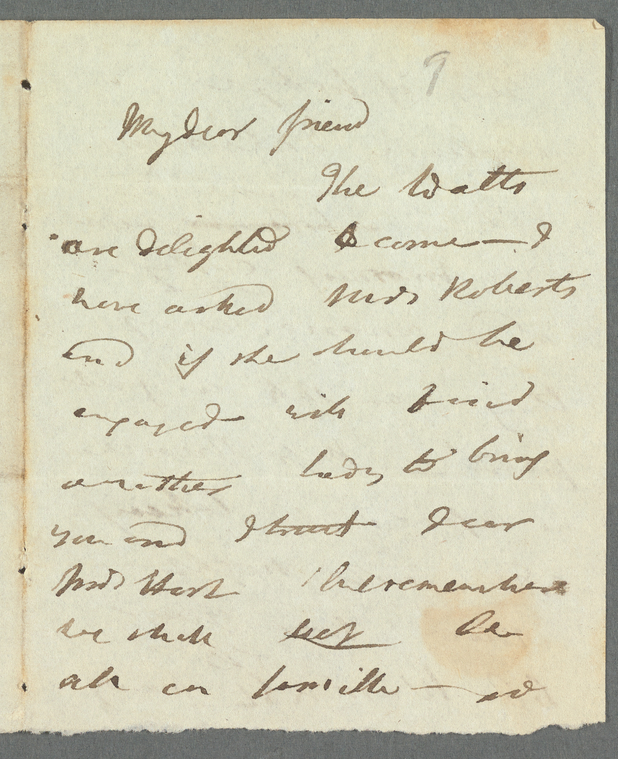 9
My dear friend
The Watts
are delighted to come — I
have asked Mrs Roberts
and if she should be
engaged will find
another lady to bring
you and I trust dear
Mrs Hart
we shall be
all en famille —